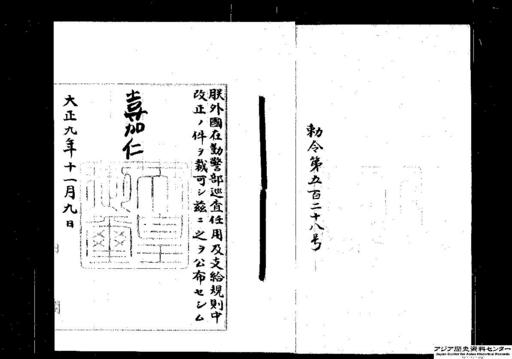 勅令第五百二十八号
朕外國在勤警部巡査任用及支給規則中
改正ノ件ヲ裁可シ茲ニ之ヲ公布セシム
嘉仁
大正九年十一月九日
アジア歴史資料センター
Japan Center for Asian Historical Records